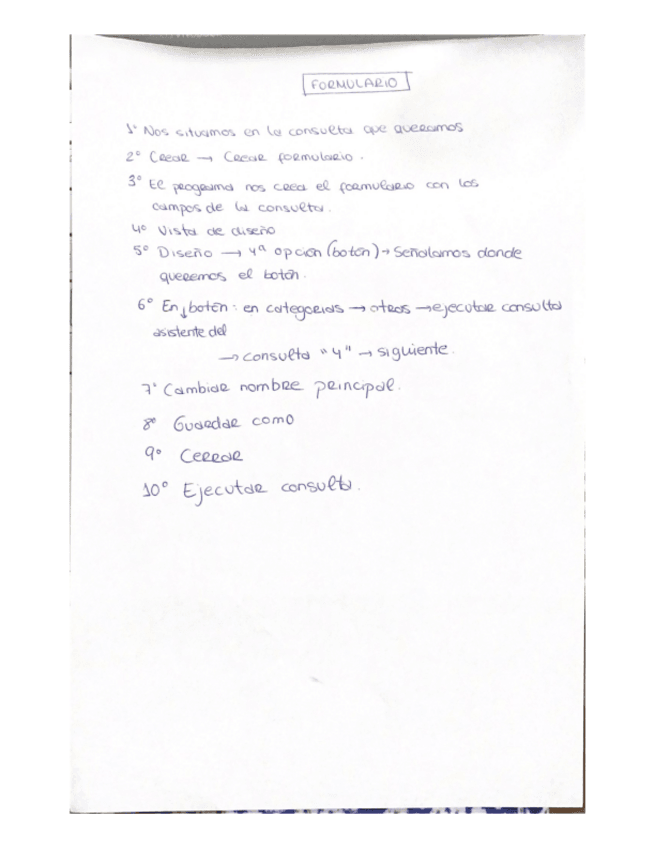 FORMULARIO
1º Nos situamos en la consulta que queramos
2º Crear → Crear formulario.
3º El programa nos crea el formulario con los
campos de la consulta.
4º Vista de diseño
5º Diseño → 4ª opción (botón) → Señalamos donde
queremos el botón.
6º En ↓ botón: en categorias → otros → ejecutar consulta
asistente del
→ consulta "4" → siguiente.
7º Cambiar nombre principal.
8º Guardar como
9º Cerrar
10º Ejecutar consulta.